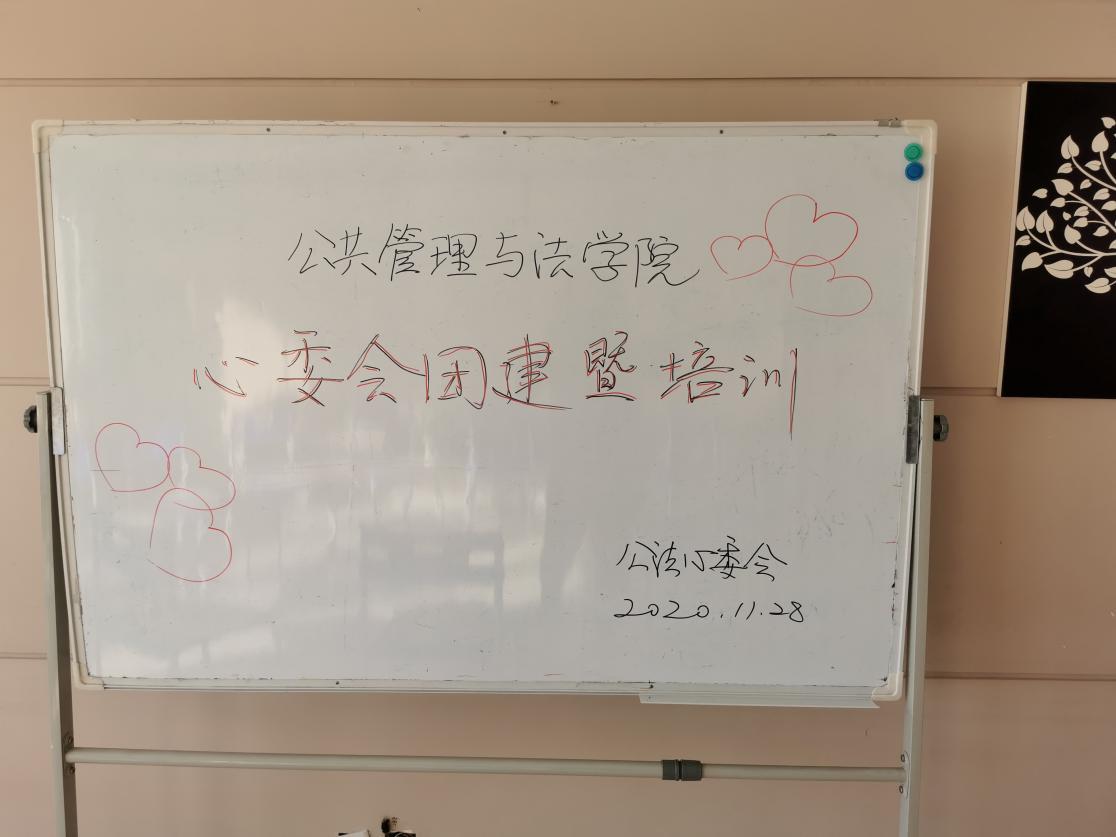 公共管理与法学院
心委会团建暨培训
公法心委会
2020.11.28